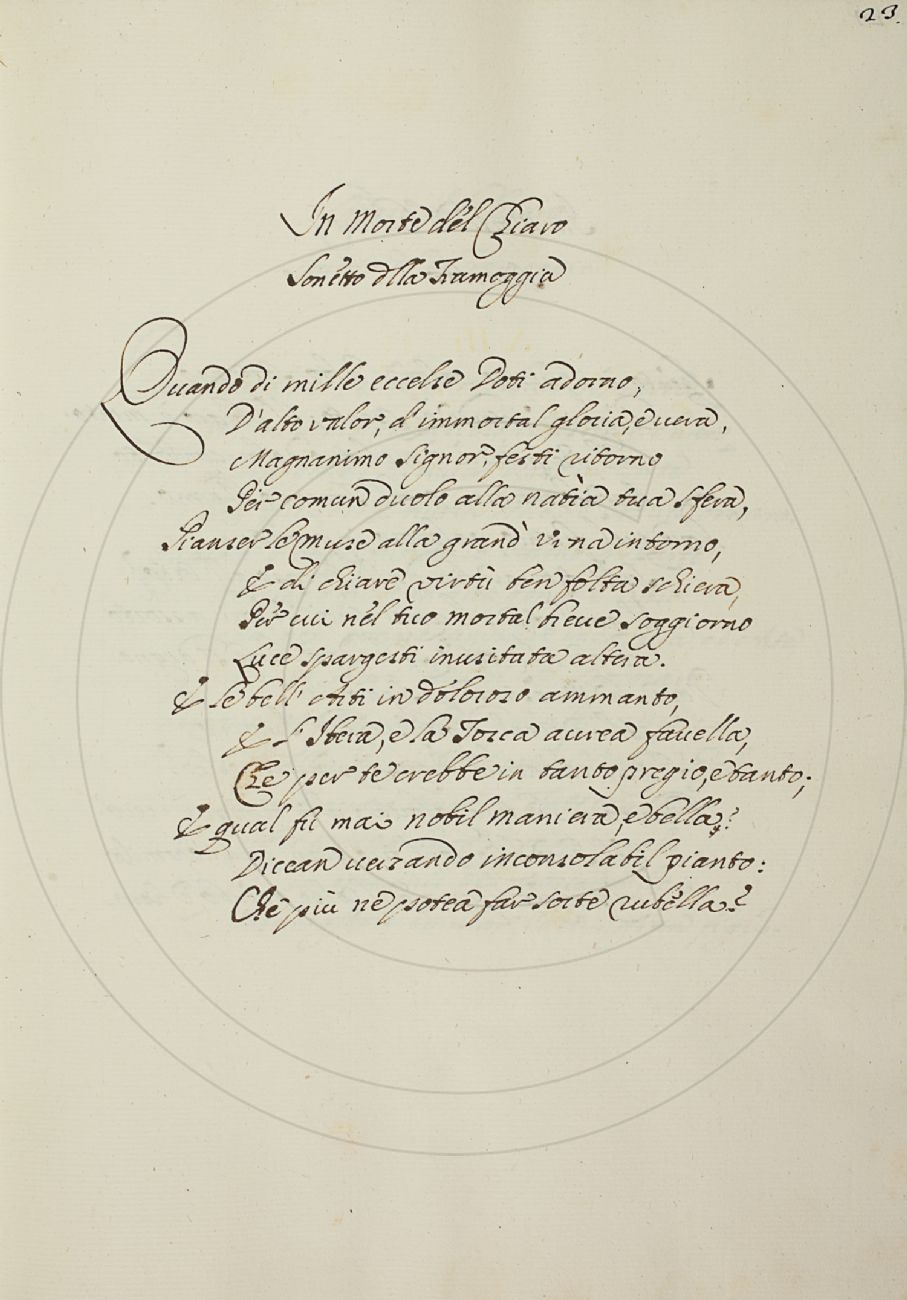 23.
In Morte del Chiaro
Sonetto della Tramoggia
Quando di mille eccelse Doti adorno,
D'alto valor, d'immortal gloria, e vera,
Magnanimo Signor, festi ritorno
Per comun duolo alla natìa tua sfera,
Pianser le Muse alla grand' Urna intorno,
E di chiare virtù ben folta schiera,
Per cui nel tuo mortal breve soggiorno
Luce spargesti inusitata altera.
E le bell' Arti in doloroso ammanto,
E l'Ibera, e la Tosca aurea favella,
Che per te crebbe in tanto pregio, e tanto;
E qual fù mai nobil maniera, e bella?
Dicean versando inconsolabil pianto:
Che più ne potea far sorte rubella?